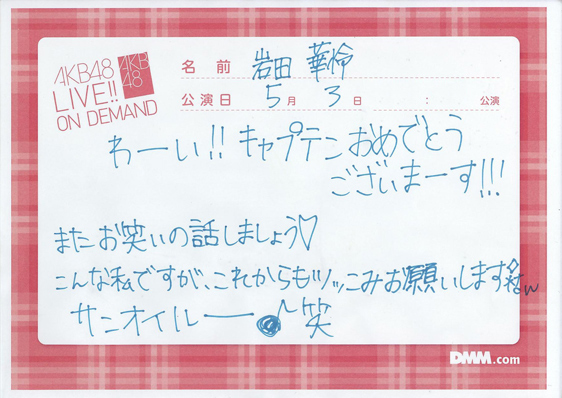 AKB48
LIVE!!
ON DEMAND
AKB
48
名前 岩田 華怜
公演日 5月 3日 : 公演
わーい!! キャプテンおめでとう
ございまーす!!!
またお笑いの話しましょう♡
こんな私ですが、これからもツッこみお願いします
サンオイルー♪笑
DMM.com